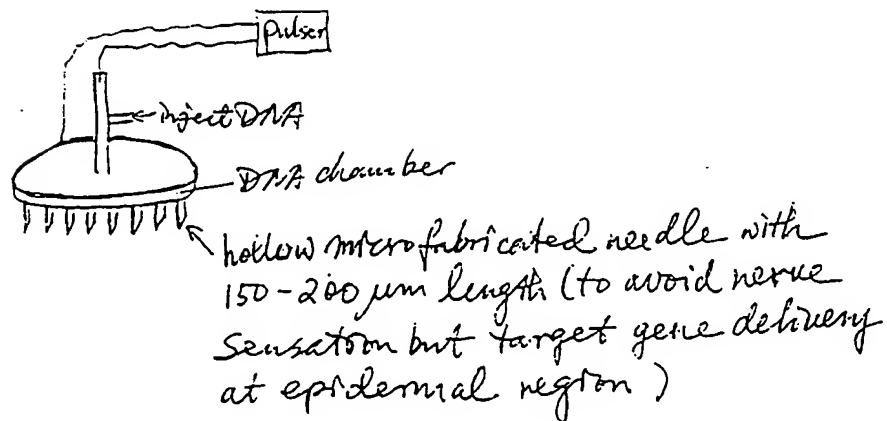 Pulser
inject DNA
DNA chamber
hollow microfabricated needle with
150-200 μm length (to avoid nerve
sensation but target gene delivery
at epidermal region)